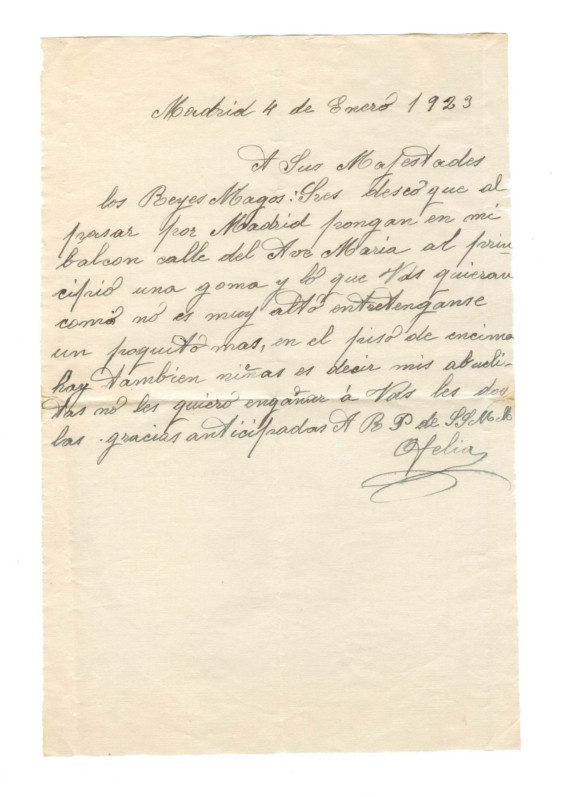 Madrid 4 de Enero 1923
A Sus Majestades
los Reyes Magos: Sres deseo que al
pasar por Madrid pongan en mi
balcon calle del Ave Maria al prin
cipio una goma y lo que Vds quieran
como no es muy alto entretenganse
un poquito mas, en el piso de encima
hay tambien niñas es decir mis abueli
tas no les quiero engañar á Vds les doy
las gracias anticipadas A R P de SSMM
Ofelia